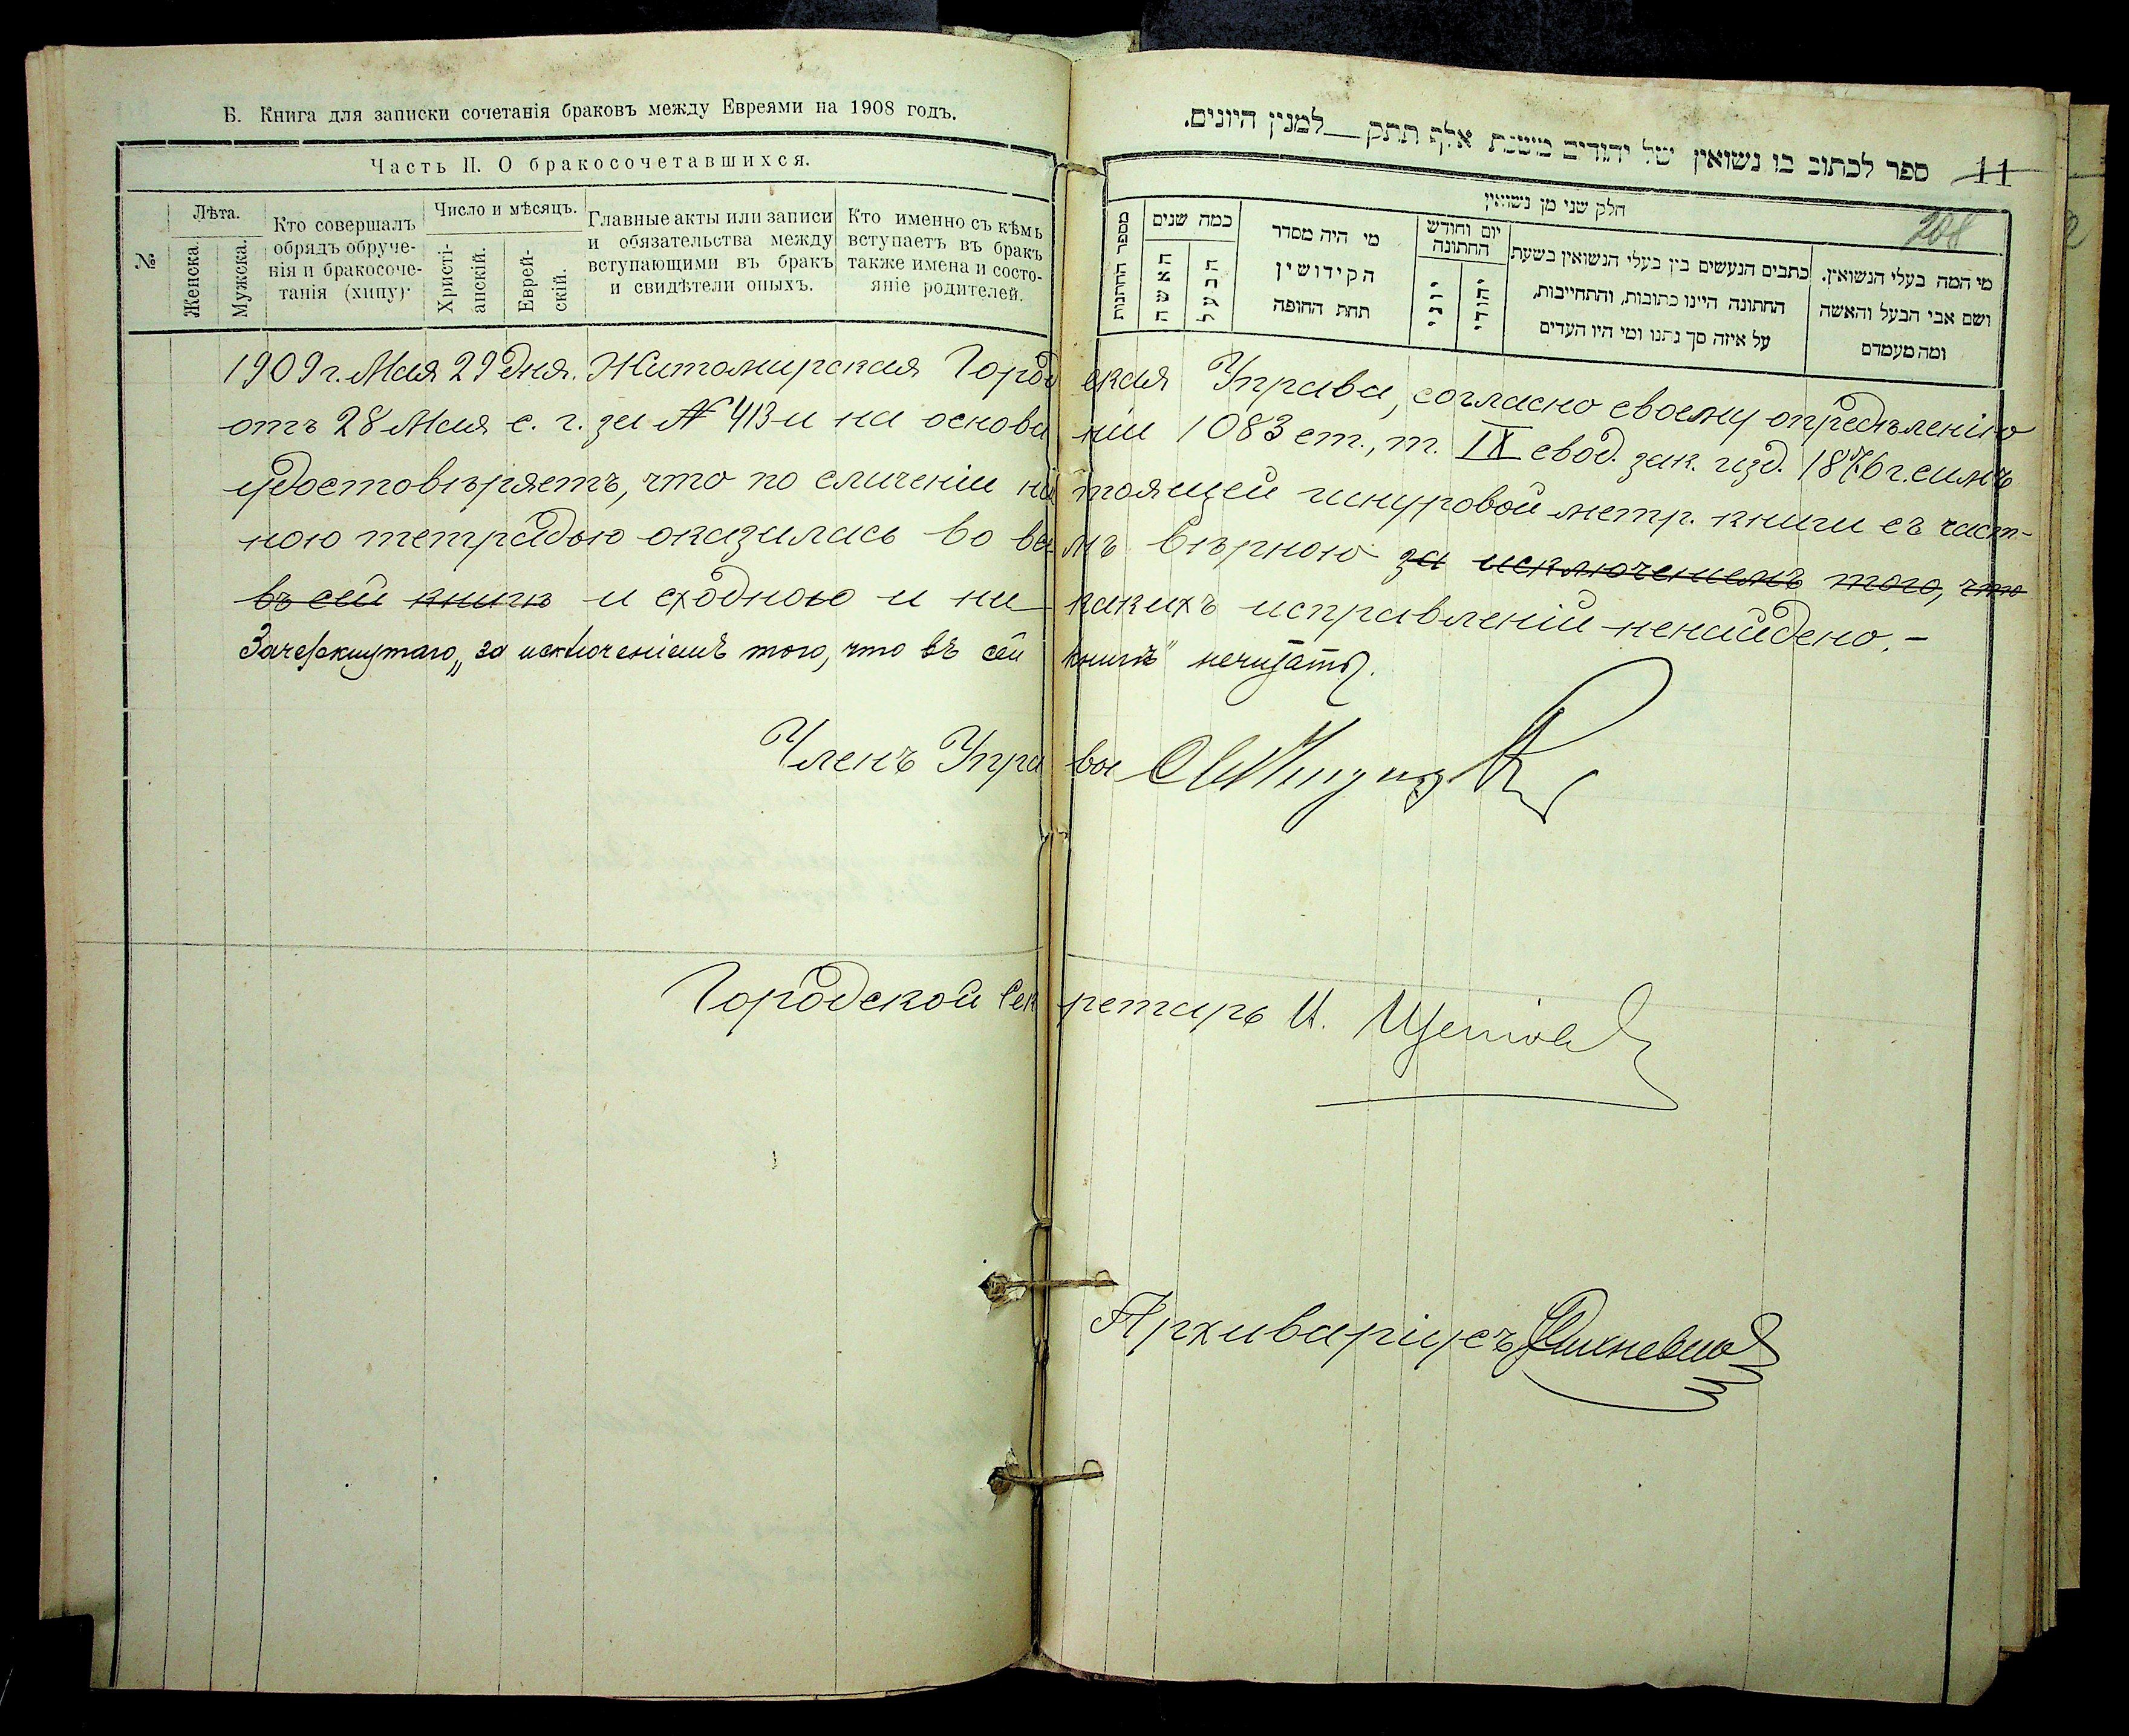 Б. Книга для записки сочетанія браковъ между Евреями на 1908 годъ.
Часть II. О бракосочетавшихся.
№
Лѣта.
Женска.
Мужска.
Кто совершалъ
обрядъ обруче-
нія и бракосоче-
танія (хипу)·
Число и мѣсяцъ.
Христі-
анскій.
Еврей-
скій.
Главные акты или записи
и обязательства между
вступающими въ бракъ
и свидѣтели оныхъ.
Кто именно съ кѣмъ
вступаетъ въ бракъ
также имена и состо-
яніе родителей.
ספר לכתוב בו נשואין של יהודים משנת אלף תתק — למנין היונים.
11
208
חלק שני מן נשואין
מספר החתנות
כמה שנים
האשה
הבעל
מי היה מסדר
הקידושין
תחת החופה
יום וחודש
החתונה
יוני
יהודי
כתבים הנעשים בין בעלי הנשואין בשעת
החתונה היינו כתובות, והתחייבות,
על איזה סך נתנו ומי היו העדים
מי המה בעלי הנשואין.
ושם אבי הבעל והאשה
ומה מעמדם
1909 г. Мая 29 дня. Житомирская Городская Управа, согласно своему опредѣленію
отъ 28 Мая с. г. за № 413 и на основаніи 1083 ст., т. IX свод. зак. изд. 1876 г. симъ
удостовѣряетъ, что по сличеніи настоящей шнуровой метр. книги съ част-
ною тетрадью оказалась во всемъ вѣрною за исключеніемъ того, что
въ сей книгѣ и сходною и никакихъ исправленій ненайдено. –
Зачеркнутаго „за исключеніемъ того, что въ сей книгѣ" нечитать.
Членъ Управы
Городской Секретарь И.
Архиваріусъ